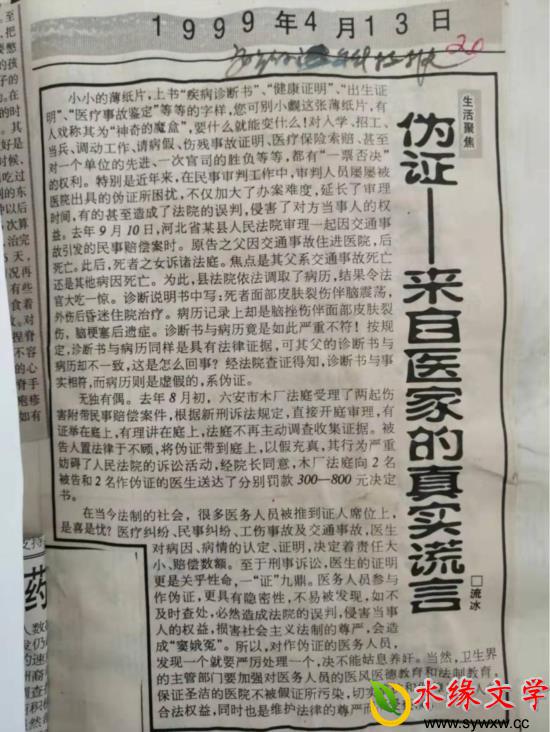 1999年4月13日
20
生活聚焦
伪证——来自医家的真实谎言
□流冰
小小的薄纸片，上书“疾病诊断书”、“健康证明”、“出生证
明”、“医疗事故鉴定”等等的字样，您可别小觑这张薄纸片，有
人戏称其为“神奇的魔盒”，要什么就能变什么！对入学、招工、
当兵、调动工作、请病假、伤残事故证明、医疗保险索赔、甚至
对一个单位的先进、一次官司的胜负等等，都有“一票否决”
的权利。特别是近年来，在民事审判工作中，审判人员屡屡被
医院出具的伪证所困扰，不仅加大了办案难度，延长了审理
时间，有的甚至造成了法院的误判，侵害了对方当事人的权
益。去年9月10日，河北省某县人民法院审理一起因交通事
故引发的民事赔偿案时。原告之父因交通事故住进医院，后
死亡。此后，死者之女诉诸法庭。焦点是其父系交通事故死亡
还是其他病因死亡。为此，县法院依法调取了病历，结果令法
官大吃一惊。诊断说明书中写：死者面部皮肤裂伤伴脑震荡，
外伤后昏迷住院治疗。病历记录上却是脑挫伤伴面部皮肤裂
伤，脑梗塞后遗症。诊断书与病历竟是如此严重不符！按规
定，诊断书与病历同样是具有法律证据，可其父的诊断书与
病历却不一致，这是怎么回事？经法院查证得知，诊断书与事
实相符，而病历则是虚假的，系伪证。
无独有偶。去年8月初，六安市木厂法庭受理了两起伤
害附带民事赔偿案件，根据新刑诉法规定，直接开庭审理，有
证举在庭上，有理讲在庭上，法庭不再主动调查收集证据。被
告人置法律于不顾，将伪证带到庭上，以假充真，其行为严重
妨碍了人民法院的诉讼活动，经院长同意，木厂法庭向2名
被告和2名作伪证的医生送达了分别罚款300—800元决定
书。
在当今法制的社会，很多医务人员被推到证人席位上，
是喜是忧？医疗纠纷、民事纠纷、工伤事故及交通事故，医生
对病因、病情的认定、证明，决定着责任大
小、赔偿数额。至于刑事诉讼，医生的证明
更是关乎性命，一“证”九鼎。医务人员参与
作伪证，更具有隐密性，不易被发现，如不
及时查处，必然造成法院的误判，侵害当事
人的权益，损害社会主义法制的尊严，会造
成“窦娥冤”。所以，对作伪证的医务人员，
发现一个就要严厉处理一个，决不能姑息养奸。当然，卫生界
的主管部门要加强对医务人员的医风医德教育和法制教育，
保证圣洁的医院不被假证所污染，切实
合法权益，同时也是维护法律的尊严
水缘文学
www.sywxw.cc